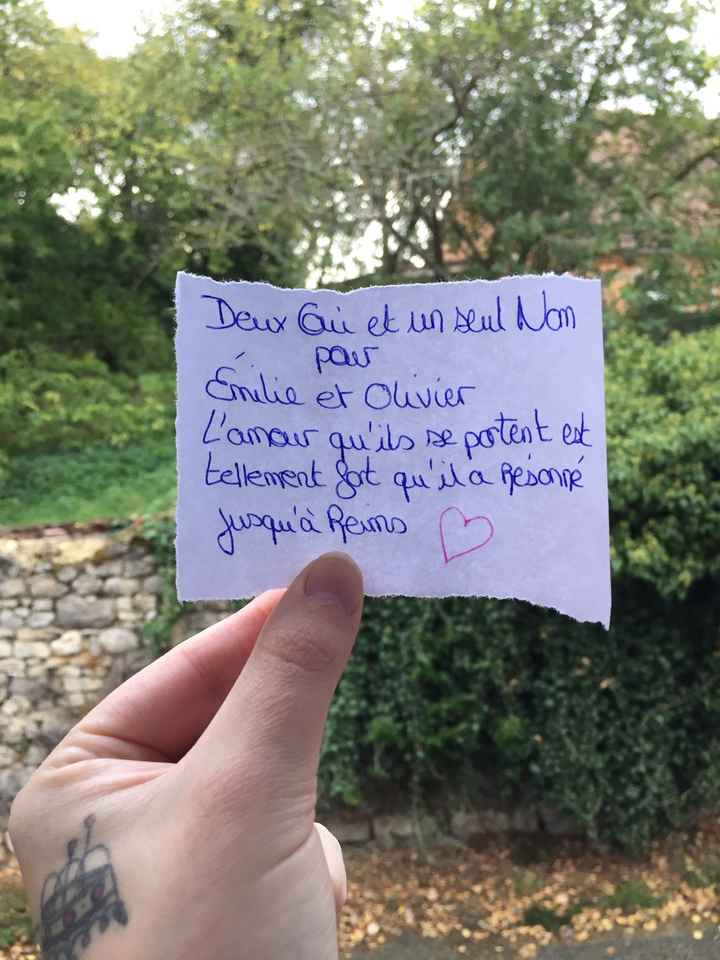 Deux Oui et un seul Nom
pour
Émilie et Olivier
L'amour qu'ils se portent est
tellement fort qu'il a Résonné
jusqu'à Reims